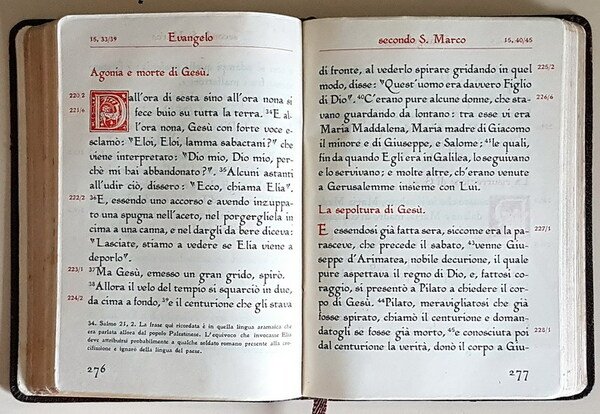 15, 33/39
Evangelo
Agonia e morte di Gesù.
220/2
Dall'ora di sesta sino all'ora nona si
221/6
fece buio su tutta la terra. 34E al-
l'ora nona, Gesù con forte voce e-
sclamò: "Eloi, Eloi, lamma sabactani?" che
viene interpretato: "Dio mio, Dio mio, per-
chè mi hai abbandonato?". 35Alcuni astanti
all'udir ciò, dissero: "Ecco, chiama Elia".
222/2
36E, essendo uno accorso e avendo inzuppa-
to una spugna nell'aceto, nel porgergliela in
cima a una canna, e nel dargli da bere diceva:
"Lasciate, stiamo a vedere se Elia viene a
deporlo".
223/1
37Ma Gesù, emesso un gran grido, spirò.
38Allora il velo del tempio si squarciò in due,
224/2
da cima a fondo, 39e il centurione che gli stava
34. Salmo 21, 2. La frase qui ricordata è in quella lingua aramaica che
era parlata allora dal popolo Palestinese. L'equivoco che invocasse Elia
deve attribuirsi probabilmente a qualche soldato romano presente alla cro-
cifissione e ignaro della lingua del paese.
276
secondo S. Marco
15, 40/45
di fronte, al vederlo spirare gridando in quel
225/2
modo, disse: "Quest'uomo era davvero Figlio
di Dio". 40C'erano pure alcune donne, che sta-
226/6
vano guardando da lontano: tra esse vi era
Maria Maddalena, Maria madre di Giacomo
il minore e di Giuseppe, e Salome; 41le quali,
fin da quando Egli era in Galilea, lo seguivano
e lo servivano; e molte altre, ch'erano venute
a Gerusalemme insieme con Lui.
La sepoltura di Gesù.
E essendosi già fatta sera, siccome era la pa-
227/1
rasceve, che precede il sabato, 43venne Giu-
seppe d'Arimatea, nobile decurione, il quale
pure aspettava il regno di Dio, e, fattosi co-
raggio, si presentò a Pilato a chiedere il cor-
po di Gesù. 44Pilato, meravigliatosi che già
fosse spirato, chiamò il centurione e doman-
datogli se fosse già morto, 45e conosciuta poi
228/1
dal centurione la verità, donò il corpo a Giu-
277